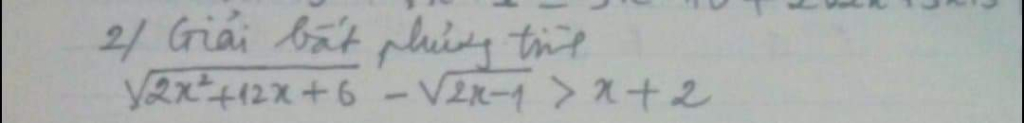 2/ Giải bất phương trình
√(2x²+12x+6) - √(2x-1) > x+2